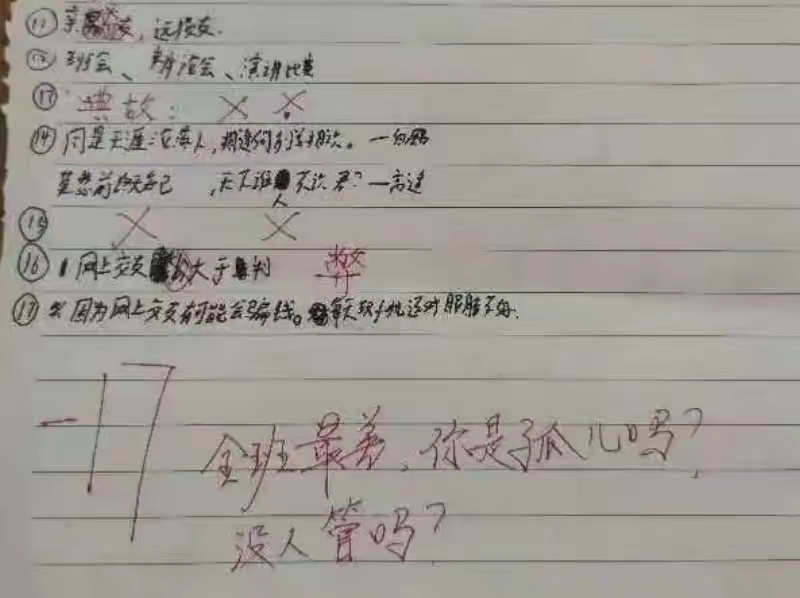 ⑪ 亲 友，远损友.
⑫ 班会、辩论会、演讲比赛
⑬ 典故： × ×
⑭ 同是天涯沦落人，相逢何 相识。—白居
莫愁前路无 己 ，天下谁人不识君？—高适
⑮ × ×
⑯ 网上交友 大于 弊
⑰ 因为网上交友有可能会骗钱。 天玩手机还对眼睛不好.
-17
全班最差、你是孤儿吗？
没人管吗？